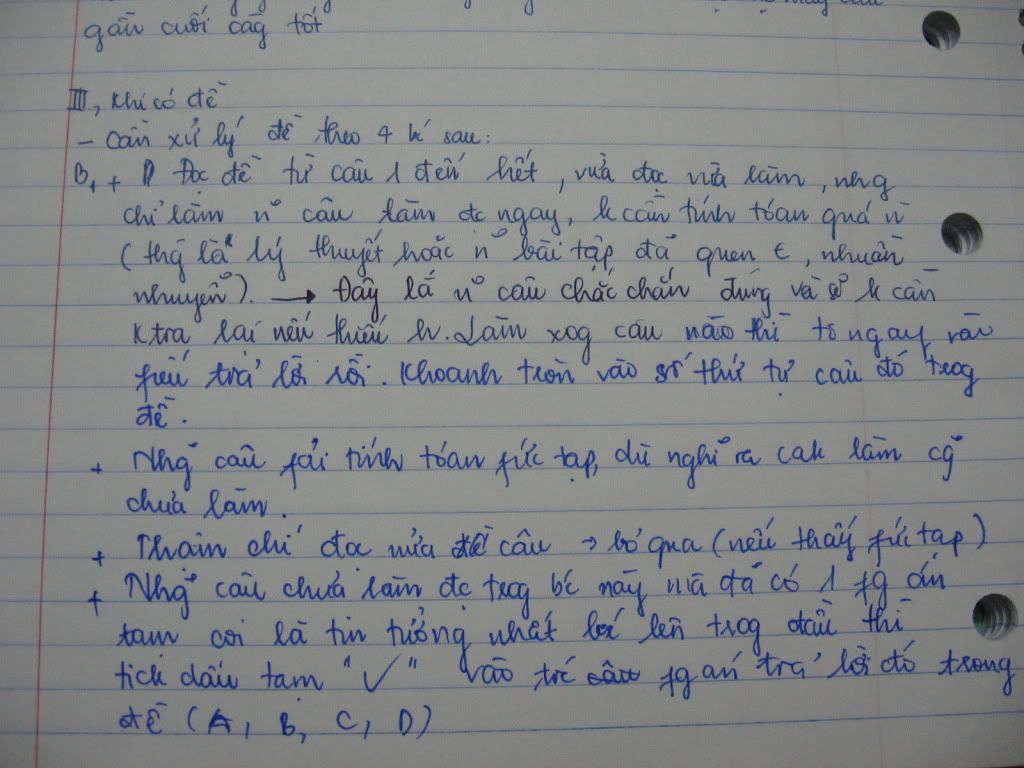 gần cuối càg tốt
III, Khi có đề
- Cần xử lý đề theo 4 b' sau:
B1 + Đọc đề từ câu 1 đến hết, vừa đọc vừa làm, nhg
chỉ làm n~ câu làm đc ngay, k cần tính tóan quá n`
(thg là lý thuyết hoặc n~ bài tập đã quen t, nhuần
nhuyễn). → Đây là n~ câu chắc chắn đúng và sẽ k cần
ktra lại nếu thiếu h. Làm xog câu nào thì tô ngay vào
fiếu trả lời rồi. Khoanh tròn vào số thứ tự câu đó trog
đề.
+ Nhg~ câu fải tính tóan fức tạp, dù nghĩ ra cak làm cg~
chưa làm.
+ Thậm chí đọc nửa câu → bỏ qua (nếu thấy fức tạp)
+ Nhg~ câu chưa làm đc trog bc' này mà đã có 1 fg án
tạm coi là tin tưởng nhất lóe lên trog đầu thì
tick dấu tạm "✓" vào trc' fg án trả lời đó trong
đề (A, B, C, D)